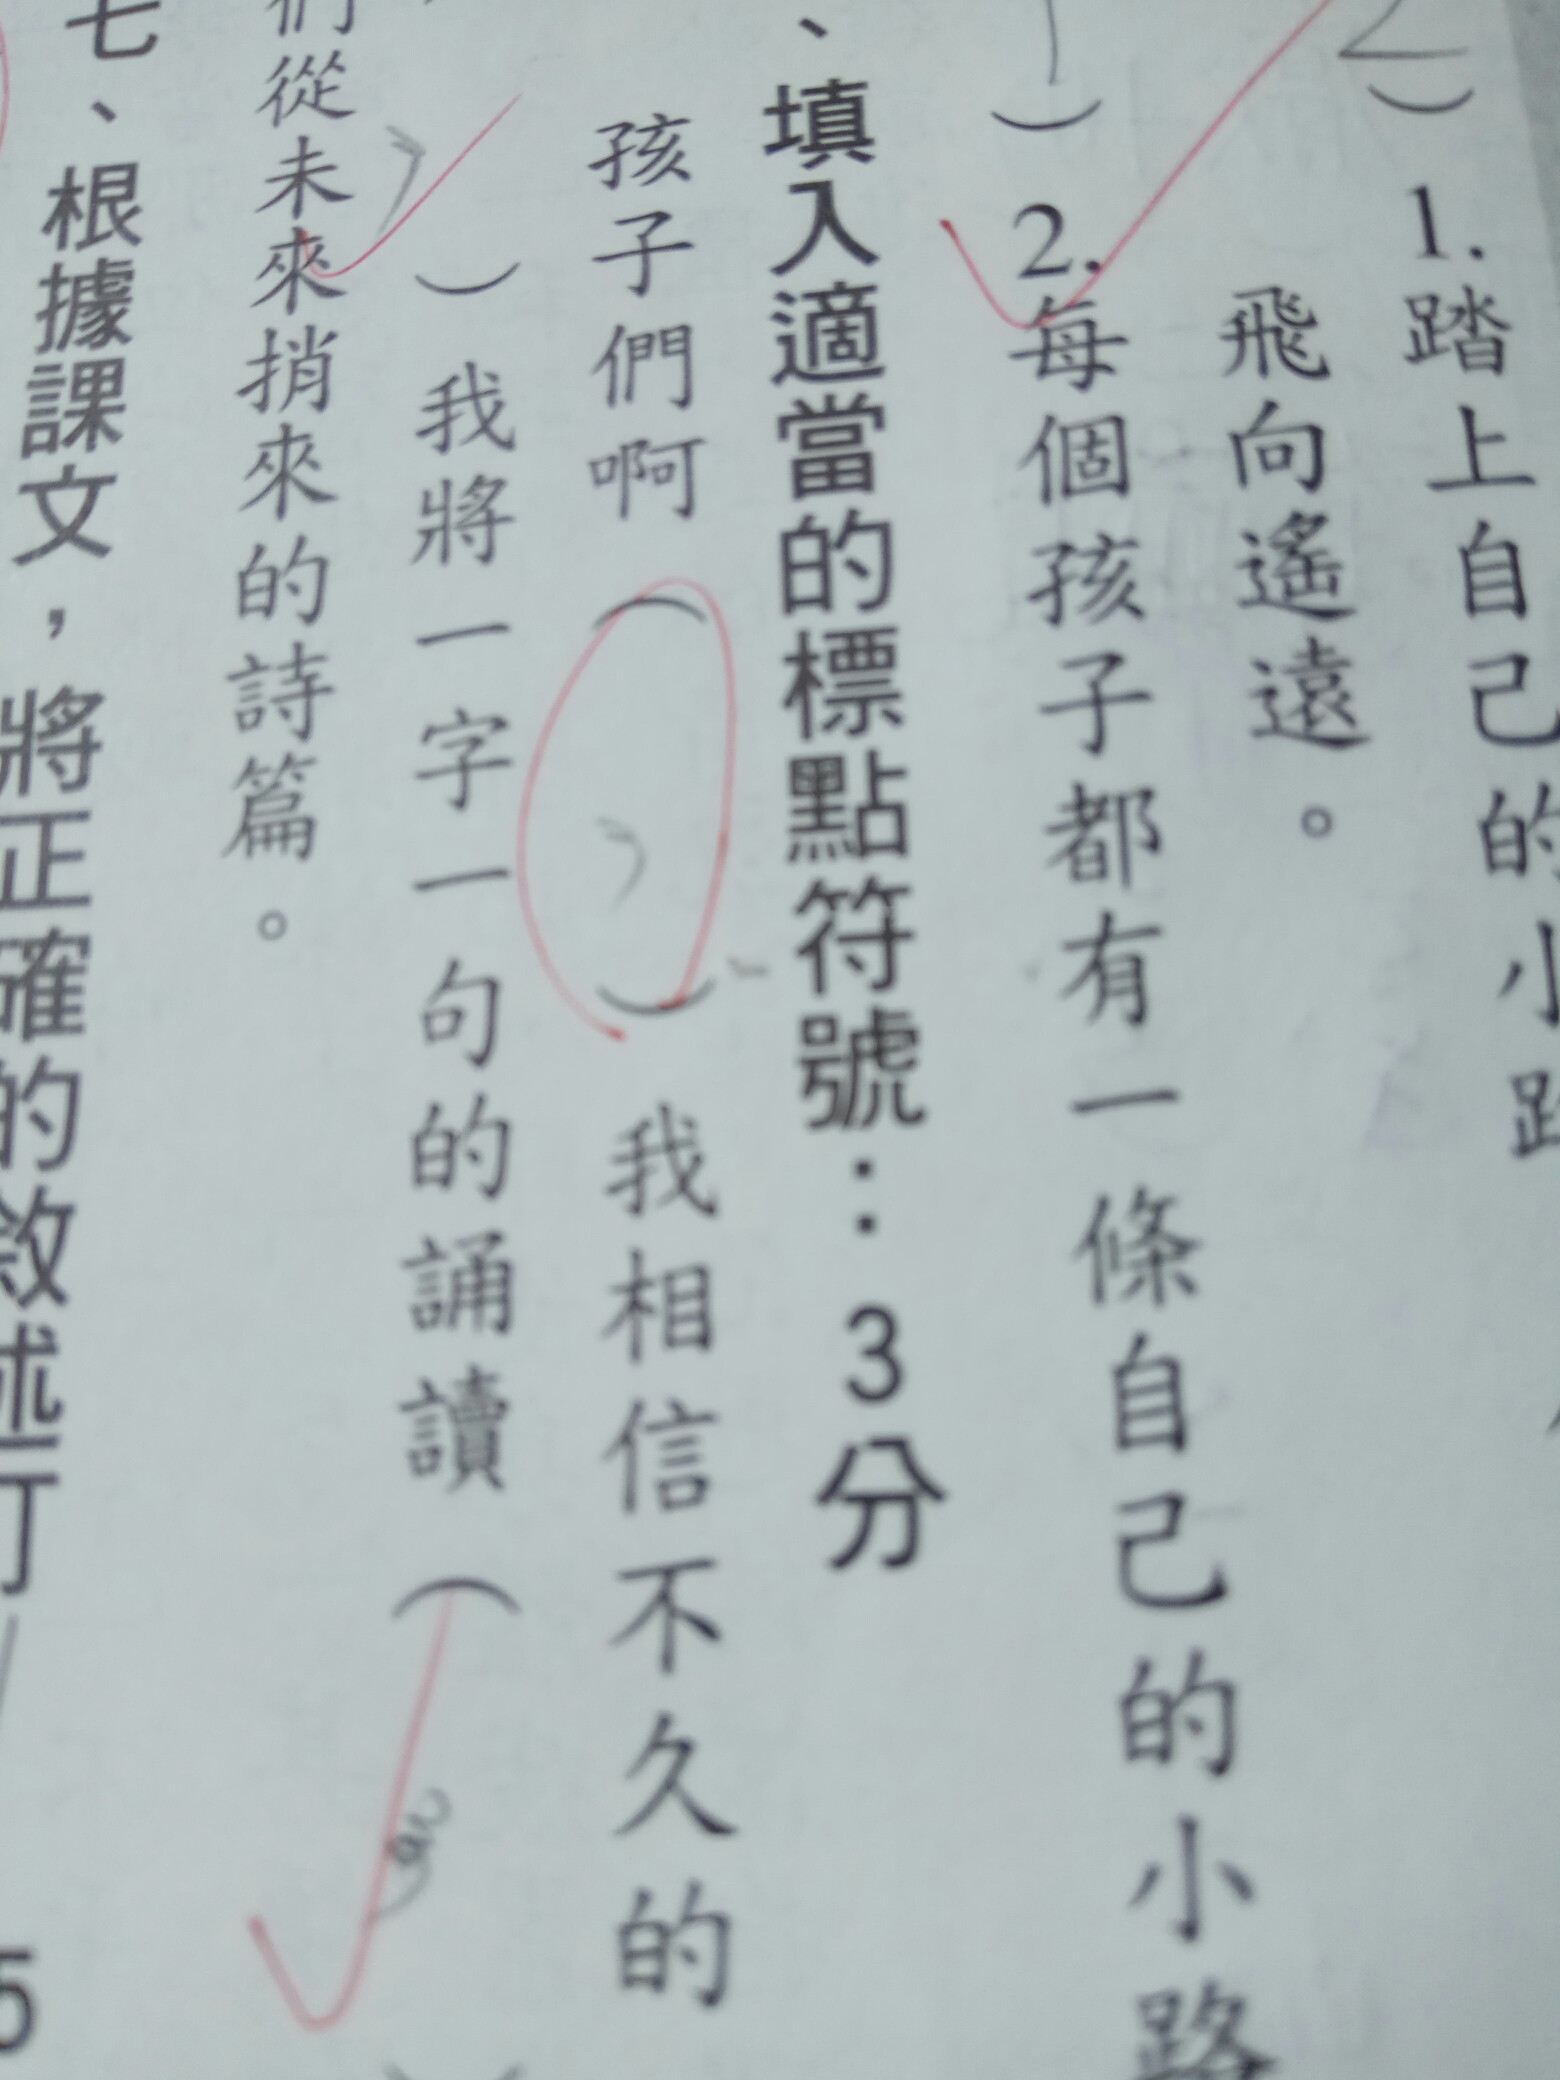 ) 1.踏上自己的小路
飛向遙遠。
) 2.每個孩子都有一條自己的小路
、填入適當的標點符號：3分
孩子們啊( , )我相信不久的
, )我將一字一句的誦讀(
們從未來捎來的詩篇。
七、根據課文，將正確的敘述打
5